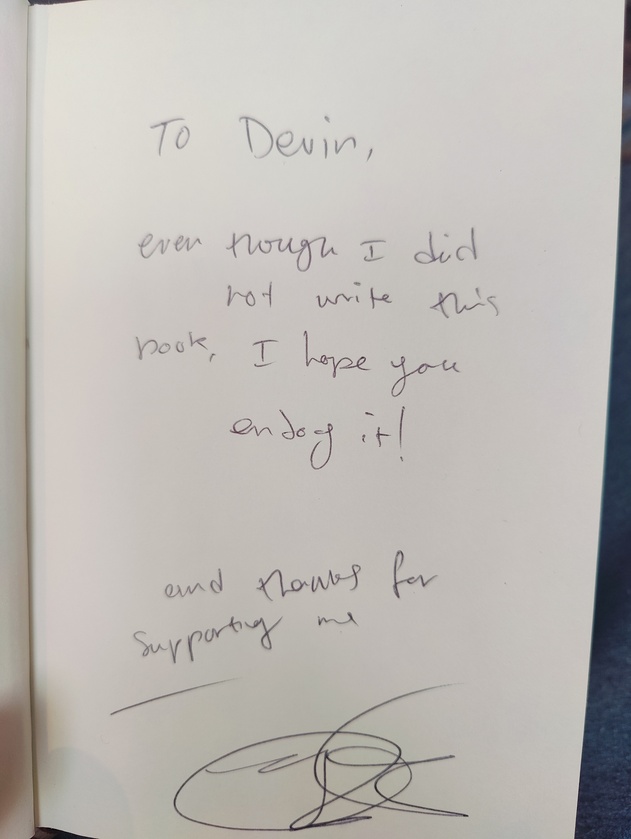 To Devin,
even though I did
not write this
book, I hope you
enjoy it!
and thanks for
supporting me